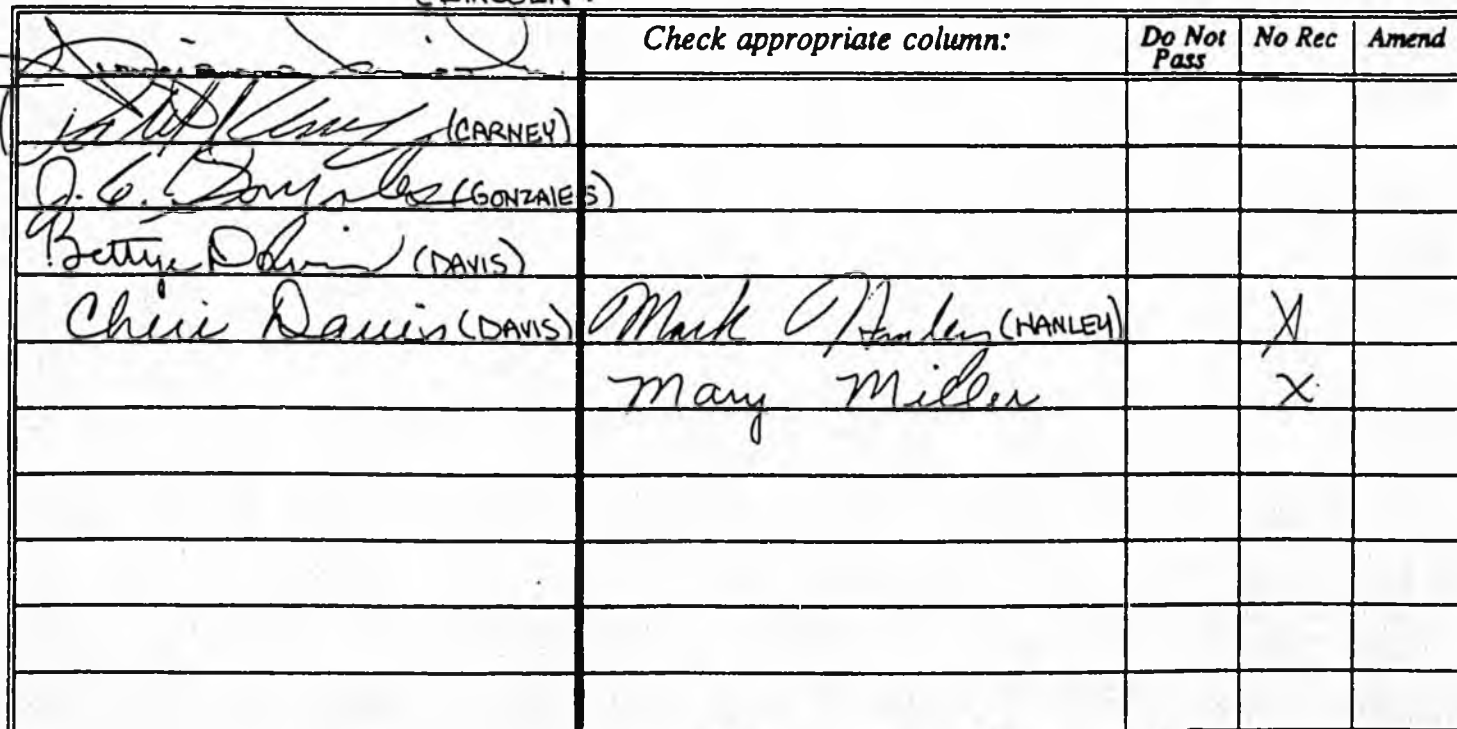 Check appropriate column: Do Not Pass No Rec Amend
(CARNEY)
(GONZALES)
Bettye Davis (DAVIS)
Cheri Davis (DAVIS) Mark Hanley (HANLEY) X
Mary Miller X